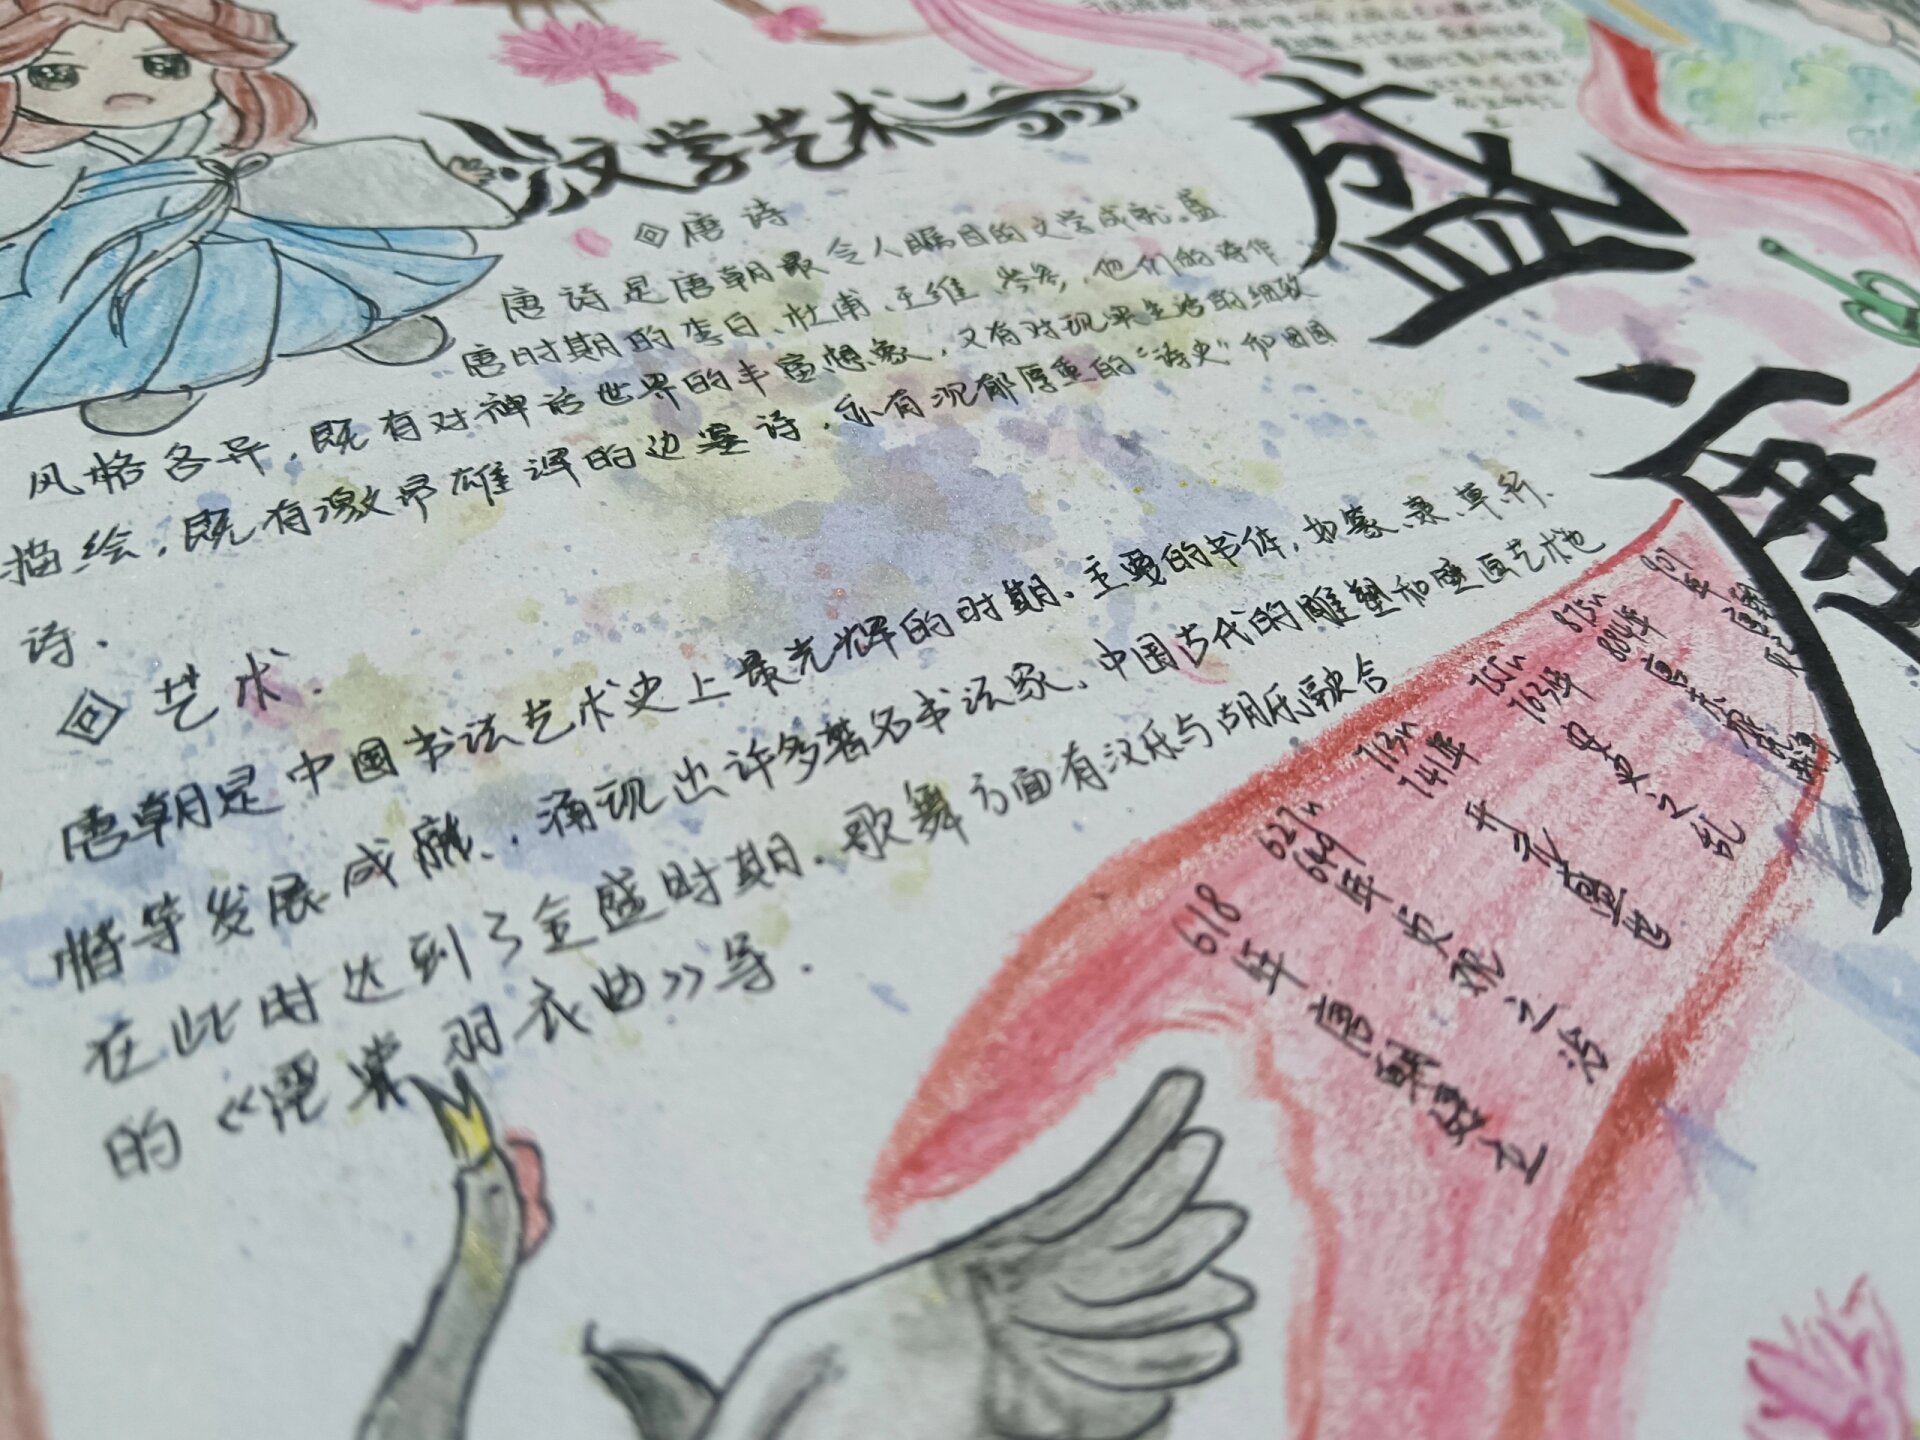 文学艺术
回唐诗
唐诗是唐朝最令人瞩目的文学成就.盛
唐时期的李白、杜甫、王维、岑参,他们的诗作
风格各异,既有对神话世界的丰富想象,又有对现实生活的细致
描绘,既有激昂雄浑的边塞诗,亦有沉郁厚重的“诗史”和田园
诗.
回艺术.
唐朝是中国书法艺术史上最光辉的时期、主要的书体,如篆、隶、草、行、
楷等发展成熟、涌现出许多著名书法家、中国古代的雕塑和壁画艺术也
在此时达到了全盛时期.歌舞方面有汉乐与胡乐融合
的《霓裳羽衣曲》等.
盛
唐
618年唐朝建立
627~649年贞观之治
713~741年开元盛世
755~763年安史之乱
875~884年
907年唐朝